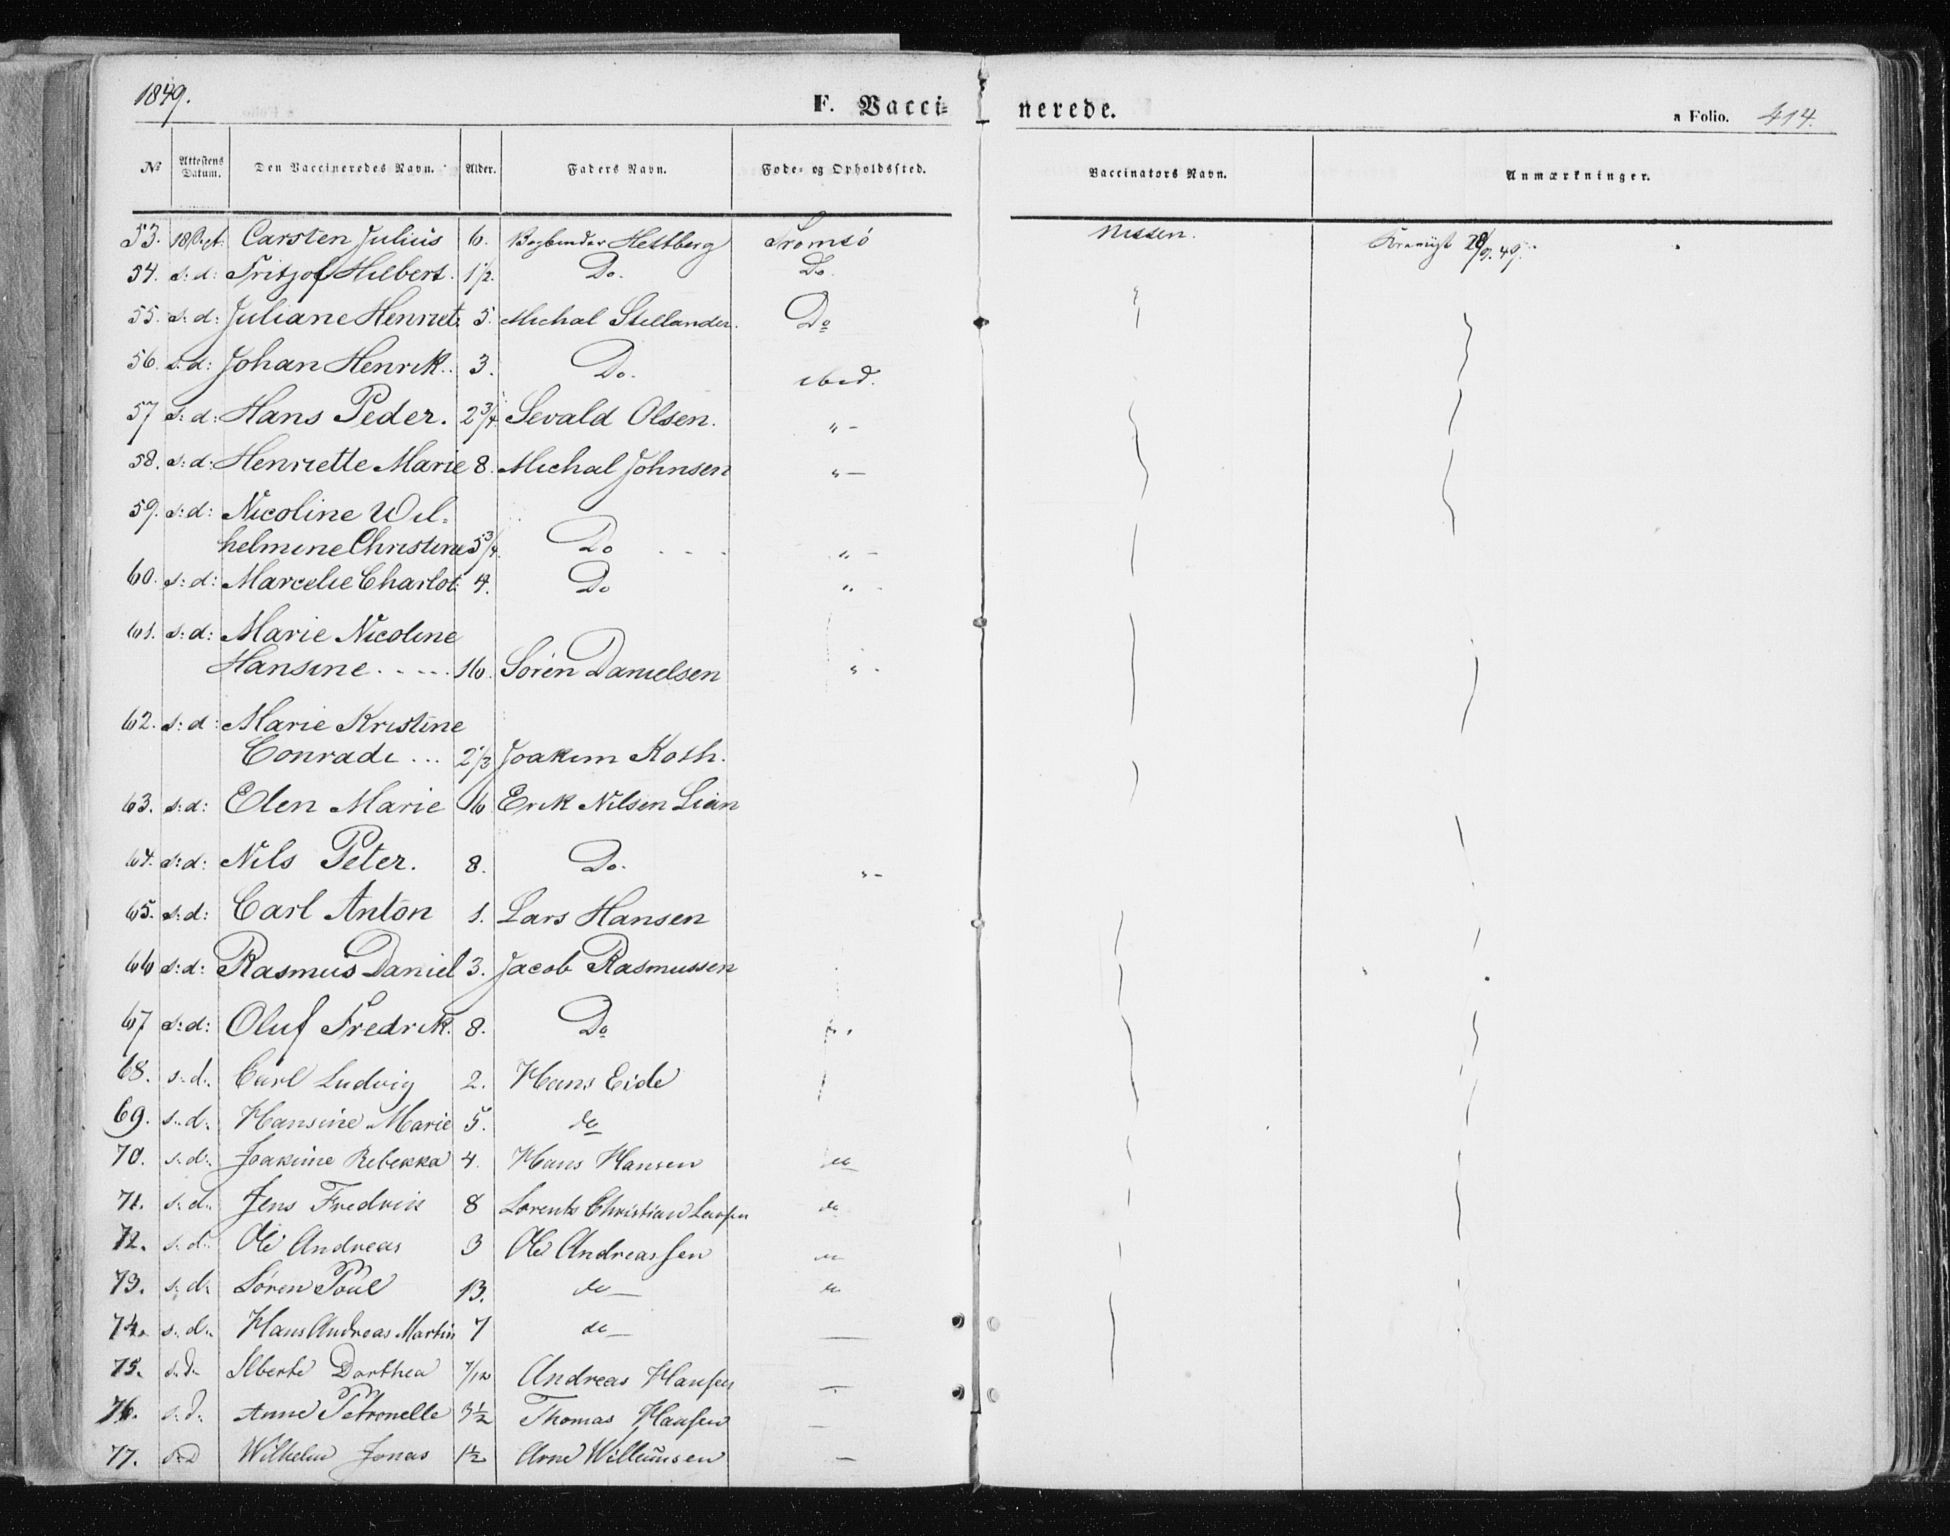 1849.
F. Vacci-
nerede.
a Folio. 414.
No Attestens Datum. Den Vaccineredes Navn. Alder. Faders Navn. Føde- og Opholdssted. Vaccinators Navn. Anmærkninger.
53. 18 Carsten Julius 6. Bogbinder Hestberg Tromsö Nissen. 49.
54. s: d: Fritjof Hilbert. 1/2. Do. Do.
55. s: d: Juliane Henriet. 5. Michal Stellander. Do
56. s: d: Johan Henrik. 3. Do. ibid.
57 s: d: Hans Peder. 2 3/4 Sevald Olsen. " -
58. s: d: Henriette Marie 8. Michal Johnsen " -
59. s: d: Nicoline Wil-
helmine Christine 5 3/4. Do " -
60. s: d: Marcelie Charlot: 4. Do " -
61. s: d: Marie Nicoline
Hansine . . . . 16. Sören Danielsen " -
62. s: d: Marie Kristine
Conradi ... 2 1/3 Joakim Koth.
63. s: d: Elen Marie 16 Erik Nilsen Lian
64. s: d: Nils Peter. 8. Do. " -
65. s: d: Carl Anton 1. Lars Hansen
66 s: d: Rasmus Daniel 3. Jacob Rasmussen
67 s: d: Oluf Fredrik. 8. Do
68. s. d. Carl Ludvig 2. Hans Eide
69. s. d. Hansine Marie 5. do
70. s. d. Joakime Rebekka 4. Hans Hansen do
71. s. d. Jens Fredrik 8 Lorents Christian Larsen do
72. s. d. Ole Andreas 3 Ole Andreassen do
73. s. d. Søren Poul 13. do — do
74. s. d. Hans Andreas Martin 7 do — —
75. s. d. Alberte Dorthea 7/12 Andreas Hansen —
76. s. d. Anne Petronelle 3 1/2 Thomas Hansen —
77. s. d. Wilhelm Jonas 1 1/2 Arne Willumsen —